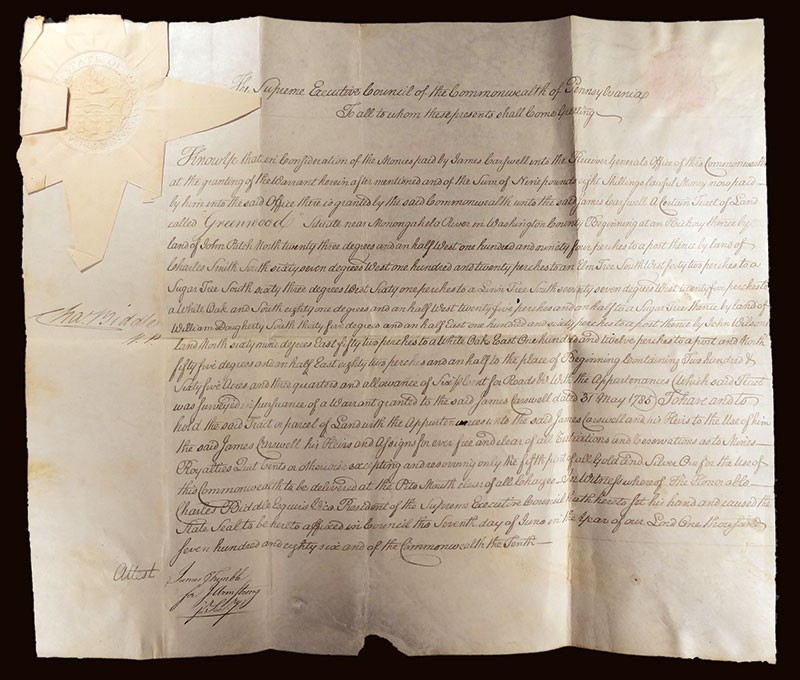 The Supreme Executive Council of the Commonwealth of Pennsylvania
To all to whom these presents shall Come Greeting
Know Ye that in Consideration of the Monies paid by James Carswell into the Receiver Generals Office of this Commonwealth
at the granting of the Warrant herein after mentioned and of the Sum of Nine pounds eight Shillings lawful Money now paid
by him into the said Office there is granted by the said Commonwealth unto the said James Carswell A Certain Tract of Land
called Greenwood Situate near Monongahela River in Washington County Beginning at an Hickory thence by
land of John Patch North twenty three degrees and an half West one hundred and ninety four perches to a post thence by land of
Charles Smith South sixty seven degrees West one hundred and twenty perches to an Elm Tree South West fifty two perches to a
Sugar Tree South sixty three degrees West Sixty one perches to a Linn Tree South seventy seven degrees West twenty five perches to
a White Oak and South eighty one degrees and an half West twenty five perches and an half to a Sugar Tree thence by land of
William Dougherty South thirty five degrees and an half East one hundred and sixty perches to a post thence by John Wilsons
land North sixty nine degrees East fifty two perches to a White Oak East One hundred and twelve perches to a post and North
fifty five degrees and an half East eighty two perches and an half to the place of Beginning Containing Two hundred &
Sixty five Acres and three quarters and allowance of Six ⅌ Cent for Roads &c With the Appertenances (Which said Tract
was Surveyed in pursuance of a Warrant granted to the said James Carswell dated 31 May 1785) To have and to
hold the said Tract or parcel of Land with the Appertenances to the said James Carswell and his Heirs to the Use of him
the said James Carswell his Heirs and Assigns for ever free and clear of all Restrictions and Reservations as to Mines
Royalties Quit Rents or otherwise excepting and reserving only the fifth part of all Gold and Silver Ore for the Use of
this Commonwealth to be delivered at the Pits Mouth clear of all Charges In Witness whereof The Honorable
Charles Biddle Esquire Vice President of the Supreme Executive Council hath hereto set his hand and caused the
State Seal to be hereto affixed in Council this Seventh day of June in the Year of our Lord One thousand
seven hundred and eighty six and of the Commonwealth the Tenth
Cha Biddle
V P
Attest
James Trimble
for J Armstrong